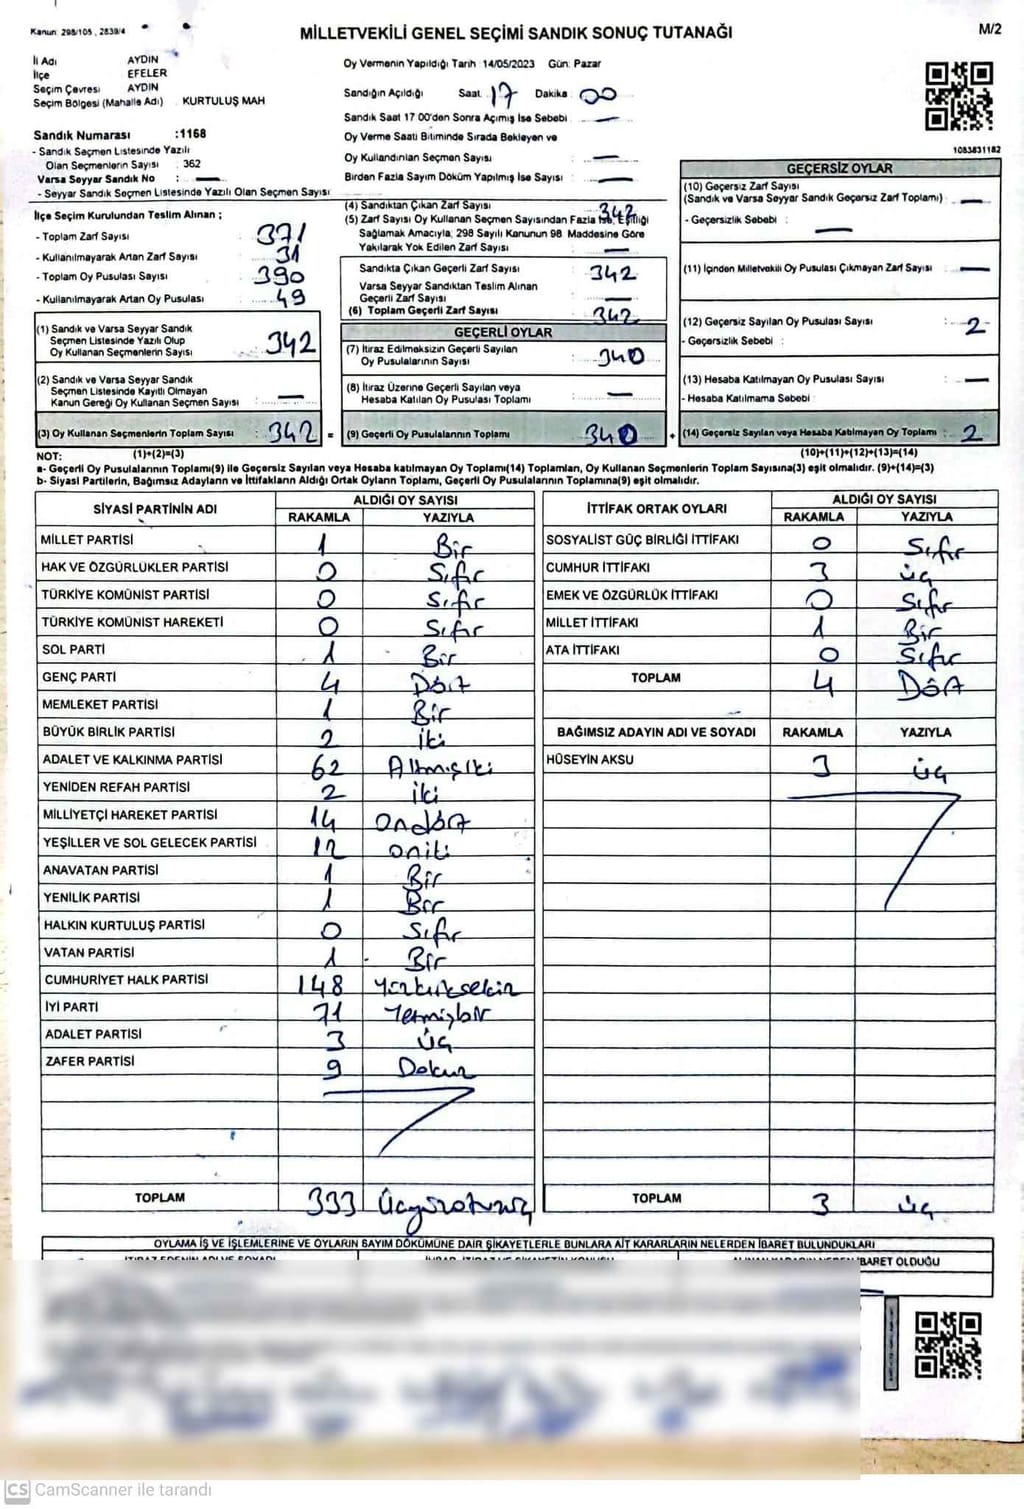 Kanun: 298/105 , 2839/4
MİLLETVEKİLİ GENEL SEÇİMİ SANDIK SONUÇ TUTANAĞI
M/2
İl Adı AYDIN
İlçe EFELER
Seçim Çevresi AYDIN
Seçim Bölgesi (Mahalle Adı) KURTULUŞ MAH
Sandık Numarası :1168
- Sandık Seçmen Listesinde Yazılı
Olan Seçmenlerin Sayısı : 362
Varsa Seyyar Sandık No : —
- Seyyar Sandık Seçmen Listesinde Yazılı Olan Seçmen Sayısı:
İlçe Seçim Kurulundan Teslim Alınan ;
- Toplam Zarf Sayısı 371
- Kullanılmayarak Artan Zarf Sayısı 31
- Toplam Oy Pusulası Sayısı 390
- Kullanılmayarak Artan Oy Pusulası 49
(1) Sandık ve Varsa Seyyar Sandık
Seçmen Listesinde Yazılı Olup
Oy Kullanan Seçmenlerin Sayısı : 342
(2) Sandık ve Varsa Seyyar Sandık
Seçmen Listesinde Kayıtlı Olmayan
Kanun Gereği Oy Kullanan Seçmen Sayısı : —
(3) Oy Kullanan Seçmenlerin Toplam Sayısı : 342 =
Oy Vermenin Yapıldığı Tarih :14/05/2023 Gün: Pazar
Sandığın Açıldığı Saat 17 Dakika 00
Sandık Saat 17:00'den Sonra Açılmış İse Sebebi : —
Oy Verme Saati Bitiminde Sırada Bekleyen ve
Oy Kullandırılan Seçmen Sayısı : —
Birden Fazla Sayım Döküm Yapılmış İse Sayısı : —
(4) Sandıktan Çıkan Zarf Sayısı : 342
(5) Zarf Sayısı Oy Kullanan Seçmen Sayısından Fazla İse, Eşitliği
Sağlamak Amacıyla, 298 Sayılı Kanunun 98 Maddesine Göre
Yakılarak Yok Edilen Zarf Sayısı : —
Sandıkta Çıkan Geçerli Zarf Sayısı : 342
Varsa Seyyar Sandıktan Teslim Alınan
Geçerli Zarf Sayısı : —
(6) Toplam Geçerli Zarf Sayısı : 342
GEÇERLİ OYLAR
(7) İtiraz Edilmeksizin Geçerli Sayılan
Oy Pusulalarının Sayısı : 340
(8) İtiraz Üzerine Geçerli Sayılan veya
Hesaba Katılan Oy Pusulası Toplamı : —
(9) Geçerli Oy Pusulalarının Toplamı : 340 +
1083831182
GEÇERSİZ OYLAR
(10) Geçersiz Zarf Sayısı
(Sandık ve Varsa Seyyar Sandık Geçersiz Zarf Toplamı) : —
- Geçersizlik Sebebi : —
(11) İçinden Milletvekili Oy Pusulası Çıkmayan Zarf Sayısı : —
(12) Geçersiz Sayılan Oy Pusulası Sayısı : 2
- Geçersizlik Sebebi :
(13) Hesaba Katılmayan Oy Pusulası Sayısı : —
- Hesaba Katılmama Sebebi :
(14) Geçersiz Sayılan veya Hesaba Katılmayan Oy Toplamı : 2
NOT: (1)+(2)=(3) (10)+(11)+(12)+(13)=(14)
a- Geçerli Oy Pusulalarının Toplamı(9) ile Geçersiz Sayılan veya Hesaba katılmayan Oy Toplamı(14) Toplamları, Oy Kullanan Seçmenlerin Toplam Sayısına(3) eşit olmalıdır. (9)+(14)=(3)
b- Siyasi Partilerin, Bağımsız Adayların ve İttifakların Aldığı Ortak Oyların Toplamı, Geçerli Oy Pusulalarının Toplamına(9) eşit olmalıdır.
SİYASİ PARTİNİN ADI ALDIĞI OY SAYISI
RAKAMLA YAZIYLA
MİLLET PARTİSİ 1 Bir
HAK VE ÖZGÜRLÜKLER PARTİSİ 0 Sıfır
TÜRKİYE KOMÜNİST PARTİSİ 0 Sıfır
TÜRKİYE KOMÜNİST HAREKETİ 0 Sıfır
SOL PARTİ 1 Bir
GENÇ PARTİ 4 Dört
MEMLEKET PARTİSİ 1 Bir
BÜYÜK BİRLİK PARTİSİ 2 İki
ADALET VE KALKINMA PARTİSİ 62 Altmışiki
YENİDEN REFAH PARTİSİ 2 İki
MİLLİYETÇİ HAREKET PARTİSİ 14 Ondört
YEŞİLLER VE SOL GELECEK PARTİSİ 12 Oniki
ANAVATAN PARTİSİ 1 Bir
YENİLİK PARTİSİ 1 Bir
HALKIN KURTULUŞ PARTİSİ 0 Sıfır
VATAN PARTİSİ 1 Bir
CUMHURİYET HALK PARTİSİ 148 Yüzkırksekiz
İYİ PARTİ 71 Yetmişbir
ADALET PARTİSİ 3 Üç
ZAFER PARTİSİ 9 Dokuz
TOPLAM 333 Üçyüzotuzüç
İTTİFAK ORTAK OYLARI ALDIĞI OY SAYISI
RAKAMLA YAZIYLA
SOSYALİST GÜÇ BİRLİĞİ İTTİFAKI 0 Sıfır
CUMHUR İTTİFAKI 3 Üç
EMEK VE ÖZGÜRLÜK İTTİFAKI 0 Sıfır
MİLLET İTTİFAKI 1 Bir
ATA İTTİFAKI 0 Sıfır
TOPLAM 4 Dört
BAĞIMSIZ ADAYIN ADI VE SOYADI RAKAMLA YAZIYLA
HÜSEYİN AKSU 3 Üç
TOPLAM 3 Üç
OYLAMA İŞ VE İŞLEMLERİNE VE OYLARIN SAYIM DÖKÜMÜNE DAİR ŞİKAYETLERLE BUNLARA AİT KARARLARIN NELERDEN İBARET BULUNDUKLARI
İBARET OLDUĞU
CS CamScanner ile tarandı